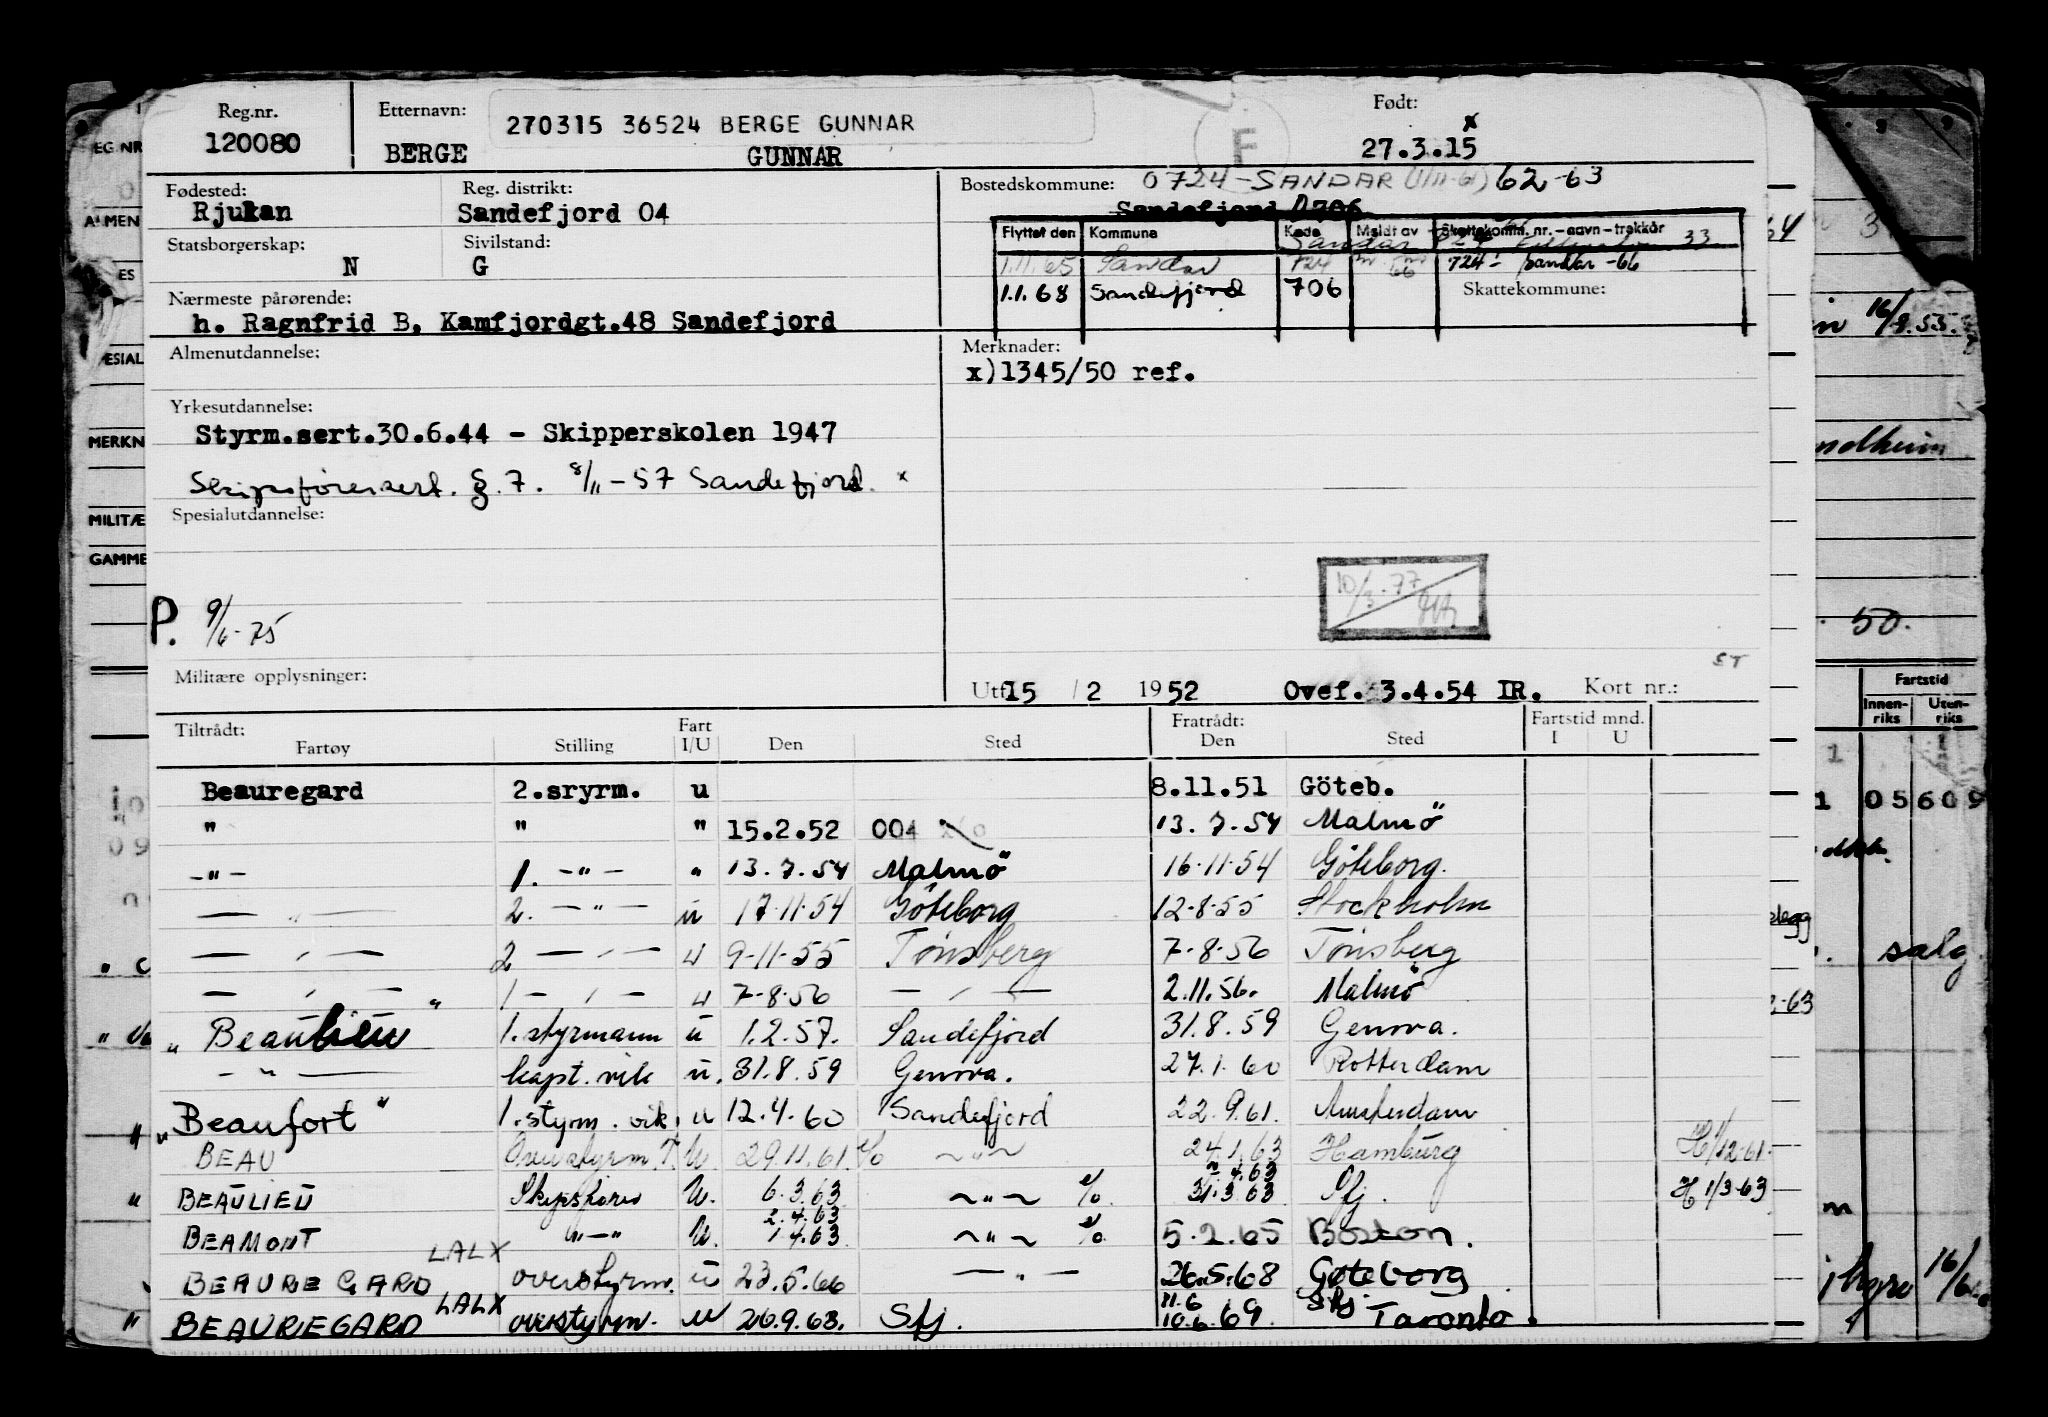 Reg.nr. Etternavn: 270315 36524 BERGE GUNNAR F Født:
120080 BERGE GUNNAR 27.3.15 x
Fødested: Reg. distrikt: Bostedskommune: 0724 - SANDAR (1/11-61) 62-63
Rjukan Sandefjord 04 Sandefjord 0706
Statsborgerskap: Sivilstand: Flyttet den Kommune Kode Meldt av Skattekomm. nr. - navn - trekkår
N G 1.11.65 Sandar 724 724 - Sandar -66
Nærmeste pårørende: 1.1.68 Sandefjord 706 Skattekommune:
h. Ragnfrid B, Kamfjordgt.48 Sandefjord
Almenutdannelse: Merknader:
x)1345/50 ref.
Yrkesutdannelse:
Styrm.sert.30.6.44 - Skipperskolen 1947
Skipsførersert. §.7. 8/11-57 Sandefjord. x
Spesialutdannelse:
10/3-77
P. 9/6-75
ST
Militære opplysninger: Utf. 15 / 2 1952 Ovef. 3.4.54 IR. Kort nr.:
Tiltrådt: Fart Fratrådt: Fartstid mnd.
Fartøy Stilling I/U Den Sted Den Sted I U
Beauregard 2.sryrm. u 8.11.51 Göteb.
" " " 15.2.52 004 13.7.54 Malmö
-"- 1. -"- " 13.7.54 Malmö 16-11-54 Göteborg.
— " — 2. -"- u 17-11-54 Göteborg 12-8-55 Stockholm
— " — 2 — " — u 9-11-55 Tönsberg 7-8-56 Tönsberg
— " — 1 — " — u 7-8-56 — " — 2.11.56. Malmö
"Beaulieu" 1.styrmann u 1.2.57. Sandefjord 31.8.59 Genova.
- " — kapt. vik u. 31.8.59 Genova. 27.1.60 Rotterdam
"Beaufort" 1.styrm. vik. u 12.4.60 Sandefjord 22.9.61. Amsterdam
BEAU Overstyrm. T. U. 29.11.61. ~"~ 24.1.63 Hamburg H 1/12-61.
BEAULIEU Skipsfører U. 6.3.63 ~"~ 2.4.63 31.3.63 Sfj. H 1/3-63
BEAMONT "—" U. 2.4.63 1.4.63 ~"~ 5.2.65 Boston.
BEAUREGARD LALX overstyrm. u 23.5.66 — " — 26.5.68 Göteborg
BEAUREGARD LALX overstyrm. u 26.9.68. Sfj. 11.6 10.6.69. Sfj Taranto.
EG NR
ALMEN
MERKN
MILITÆ
GAMME
16/9.53.
50.
Fartstid
Innen-riks Uten-riks
05609
salg